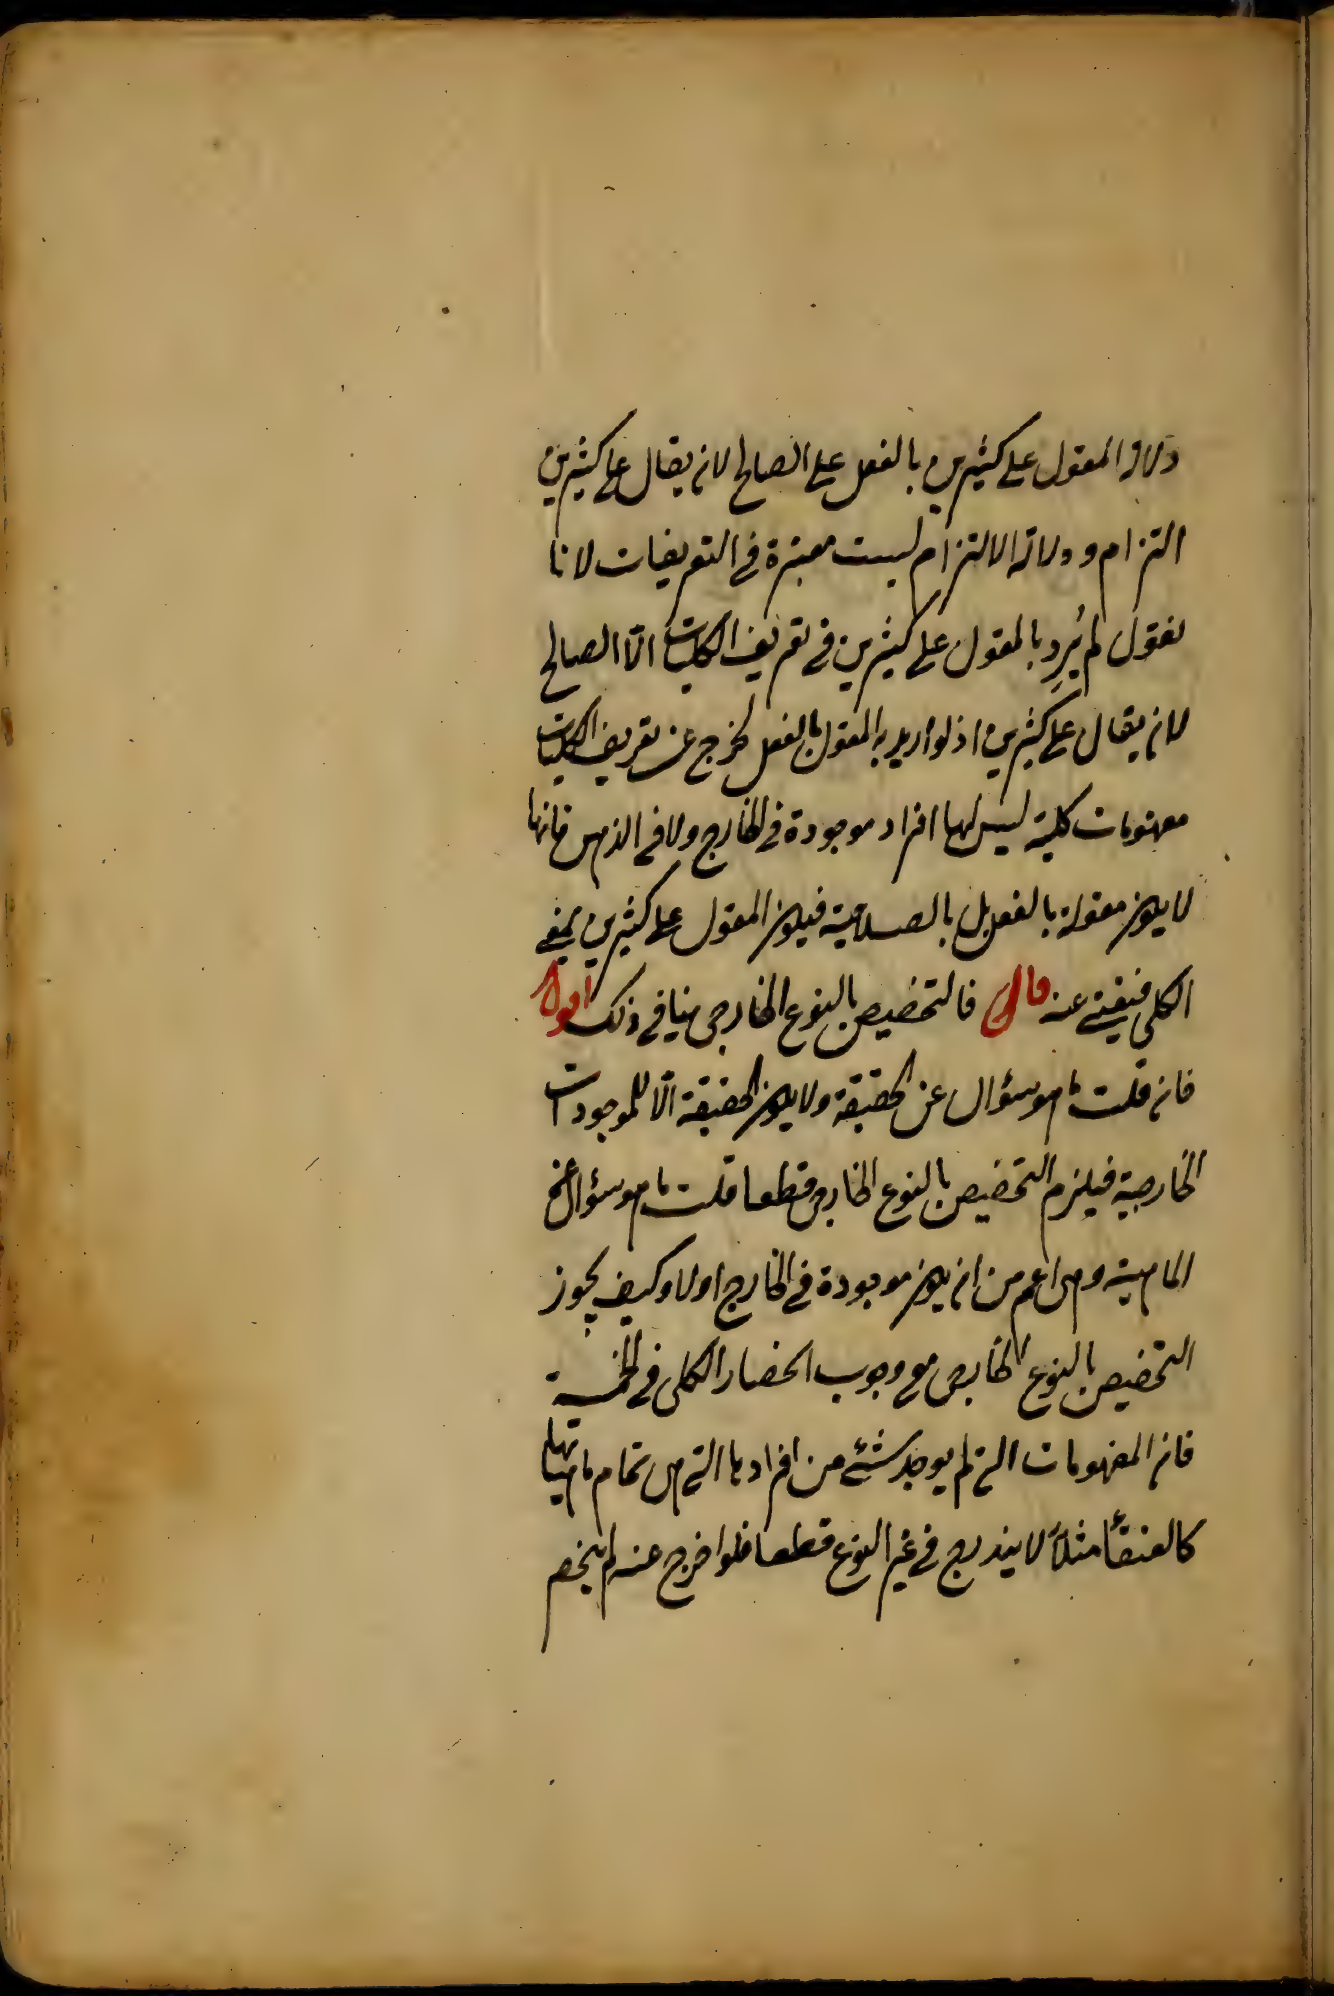 دلالة المقول على كثيرين بالفعل على الصالح لان يقال على كثيرين
التزام ودلالة الالتزام ليست معتبرة في التعريفات لانا
نقول لم يُرِد بالمقول على كثيرين في تعريف الكليات الّا الصالح
لان يقال على كثيرين اذ لو اريد به المقول بالفعل لخرج عن تعريف الكليات
مفهومات كلية ليس لها افراد موجودة في الخارج ولا في الذهن فانها
لا يكون مقولة بالفعل بل بالصلاحية فيكون المقول على كثيرين بمعنى
الكلي فيغني عنه قال فالتخصيص بالنوع الخارجي ينافي ذلك اقول
فان قلت ما هو سؤال عن الحقيقة ولا يكون الحقيقة الّا للموجودات
الخارجية فيلزم التخصيص بالنوع الخارجي قطعا قلت ما هو سؤال عن
الماهية وهي اعم من ان يكون موجودة في الخارج اولا وكيف يجوز
التخصيص بالنوع الخارجي مع وجوب انحصار الكلي في الخمسة
فان المفهومات التي لم يوجد شئ من افرادها التي هي تمام ماهياتها
كالعنقأ مثلاً لا يندرج في غير النوع قطعا فلو اخرج عنه لم ينحصر